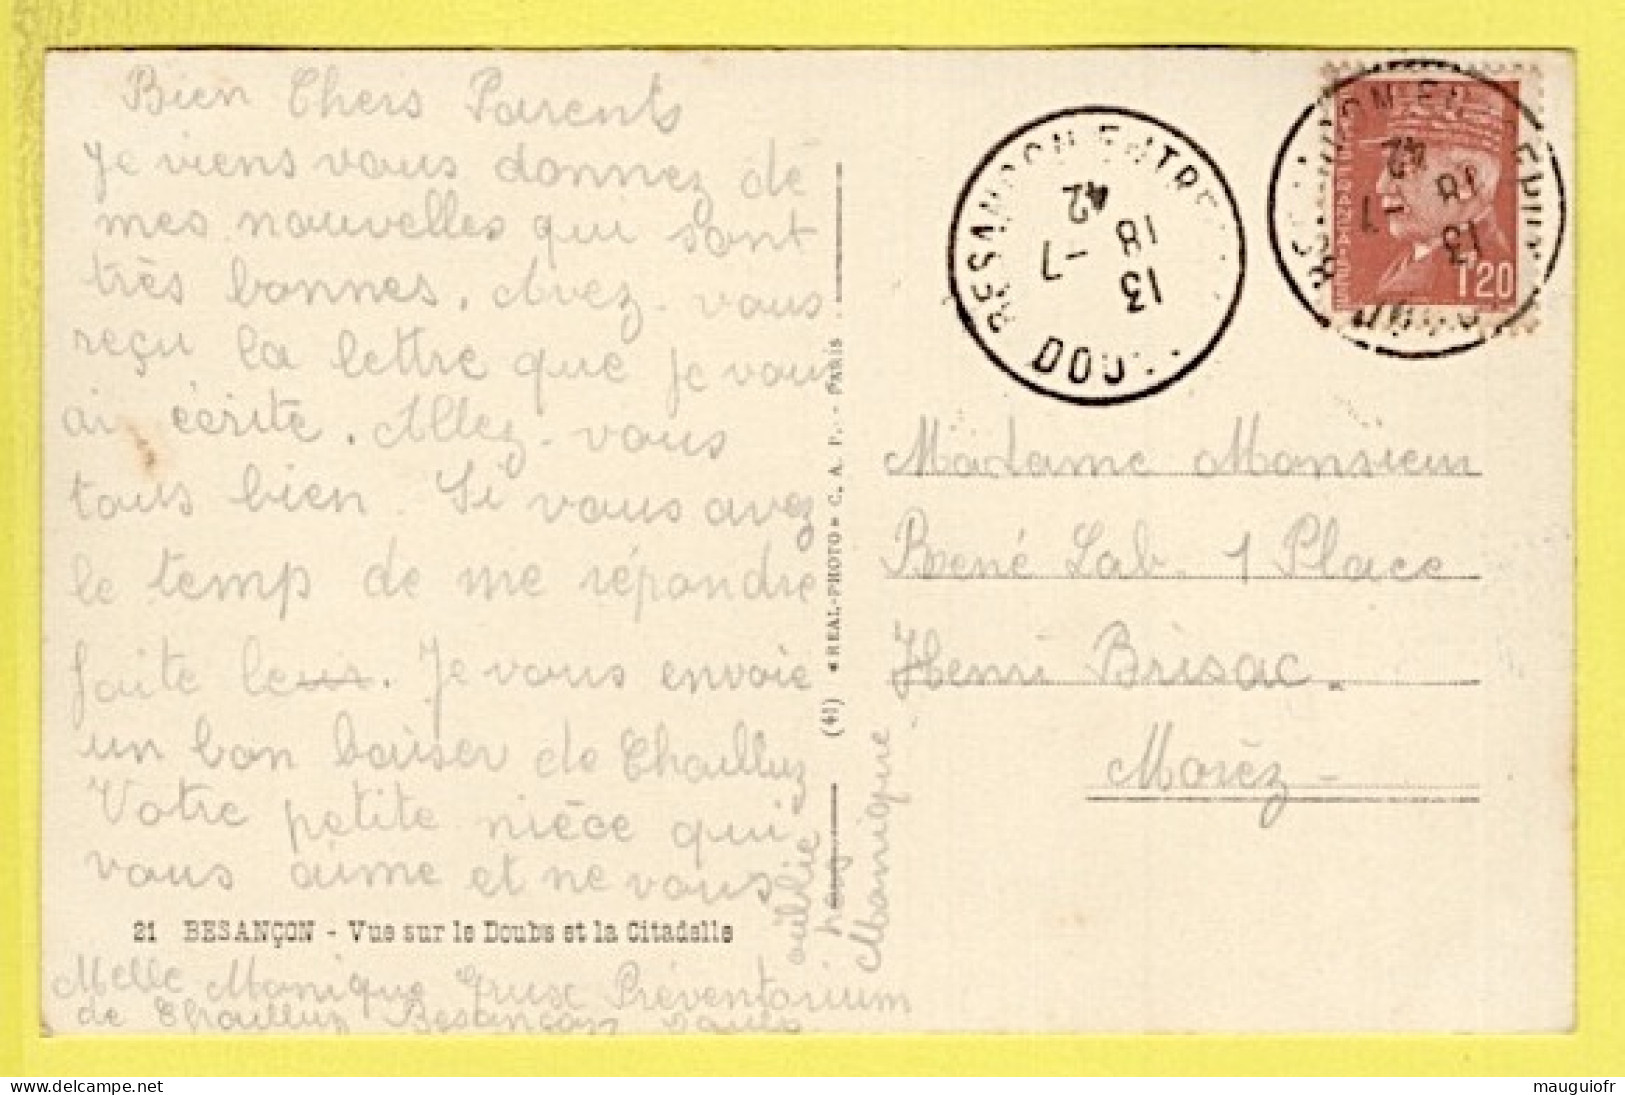 Bien Chers Parents
Je viens vous donnez de
mes nouvelles qui sont
très bonnes. Avez-vous
reçu la lettre que je vous
ai écrite. Allez-vous
tous bien. Si vous avez
le temp de me répondre
faite le. Je vous envoie
un bon baiser de Chailluz
Votre petite nièce qui
vous aime et ne vous
oublie pas
Monique
21 BESANÇON - Vue sur le Doubs et la Citadelle
Melle Monique Preventorium
de Chailluz Besançon Doubs
(41) « REAL-PHOTO » C. A. P. - PARIS
BESANCON ENTREPOT
13
18 - 7
42
DOUBS
1F20
13
18 - 7
42
Madame Monsieur
René Lab. 1 Place
Henri Brisac.
Morèz -
delcampe.net
mauguiofr